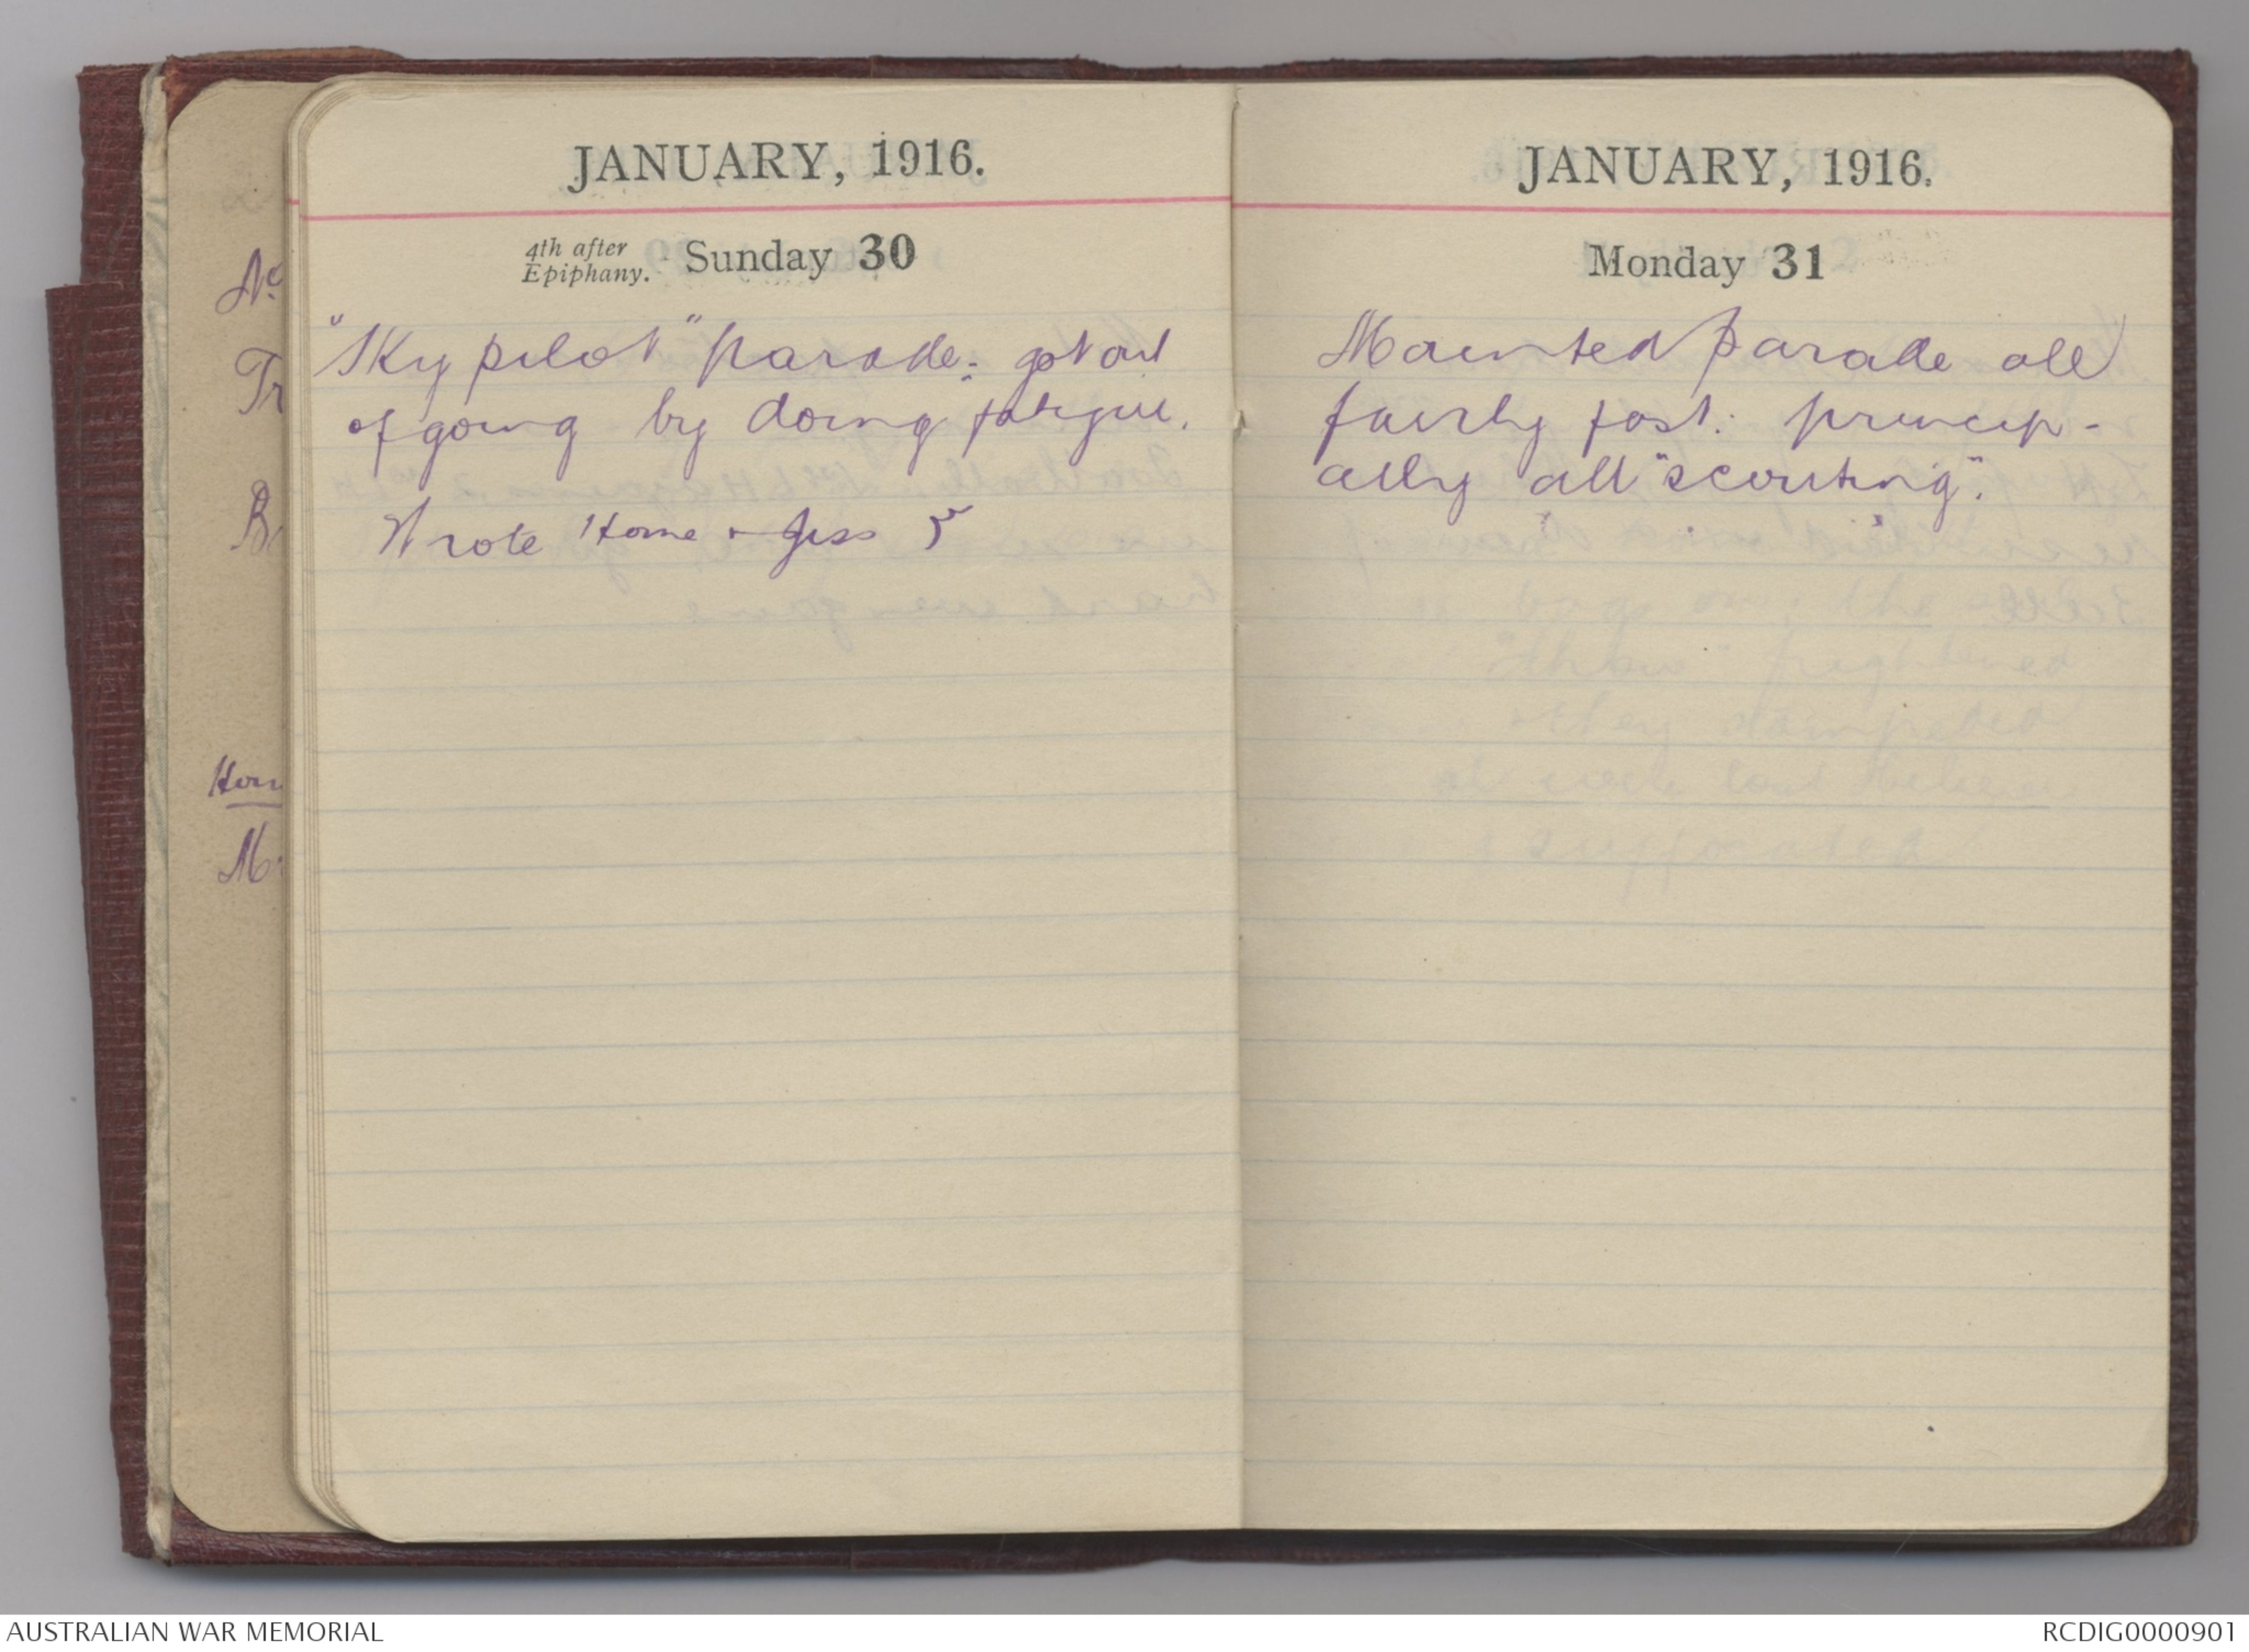 JANUARY, 1916.
4th after
Epiphany. Sunday 30
"Sky pilot" parade; got out
of going by doing fatigue.
Wrote Home + Jess 5
JANUARY, 1916.
Monday 31
Mounted parade all
fairly fast: princip-
ally all "scouting".
AUSTRALIAN WAR MEMORIAL
RCDIG0000901